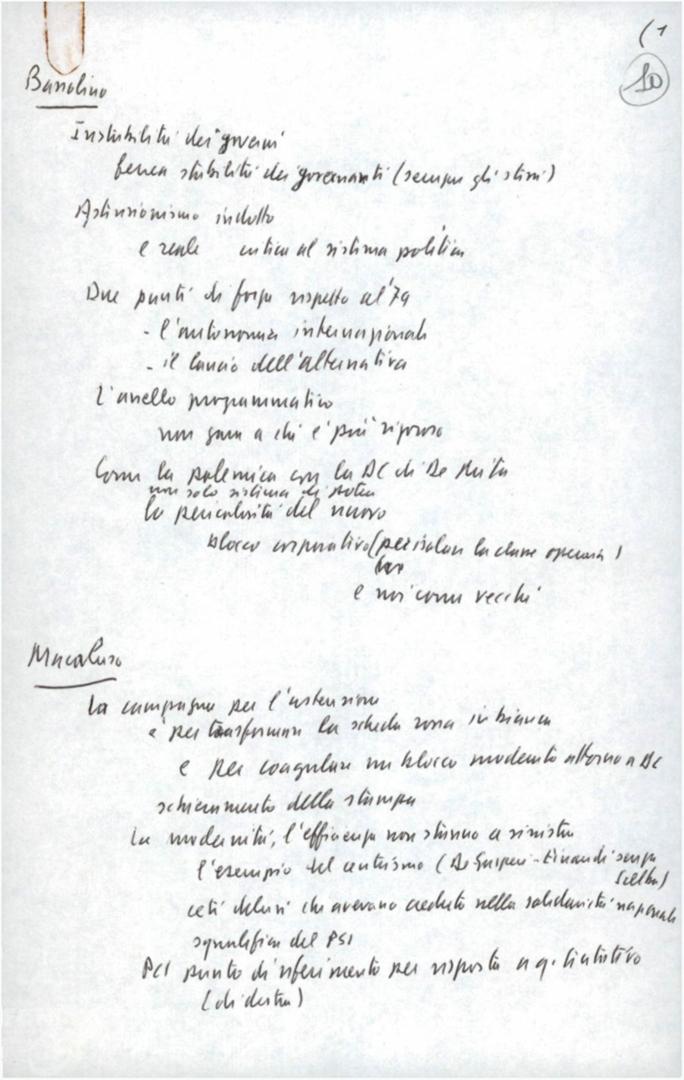 (1
10
Bassolino
Instabilità dei governi
senza stabilità dei governanti (sempre gli stessi)
Astensionismo indotto
e reale critica al sistema politico
Due punti di forza rispetto al '79
- l'autonomia internazionale
- il lancio dell'alternativa
L'anello programmatico
non gara a chi è più rigoroso
Come la polemica con la DC di De Mita
non solo sistema di potere
la pericolosità del nuovo
blocco corporativo (per isolare la classe operaia)
e noi come vecchi
Macaluso
La campagna per l'astensione
è per trasformare la scheda rossa in bianca
e per coagulare un blocco moderato attorno a DC
schieramento della stampa
La modernità, l'efficienza non stanno a sinistra
l'esempio del centrismo (De Gasperi - Einaudi senza
Scelba)
ceti delusi che avevano creduto nella solidarietà nazionale
squalifica del PSI
PCI punto di riferimento per risposta a
(di destra)